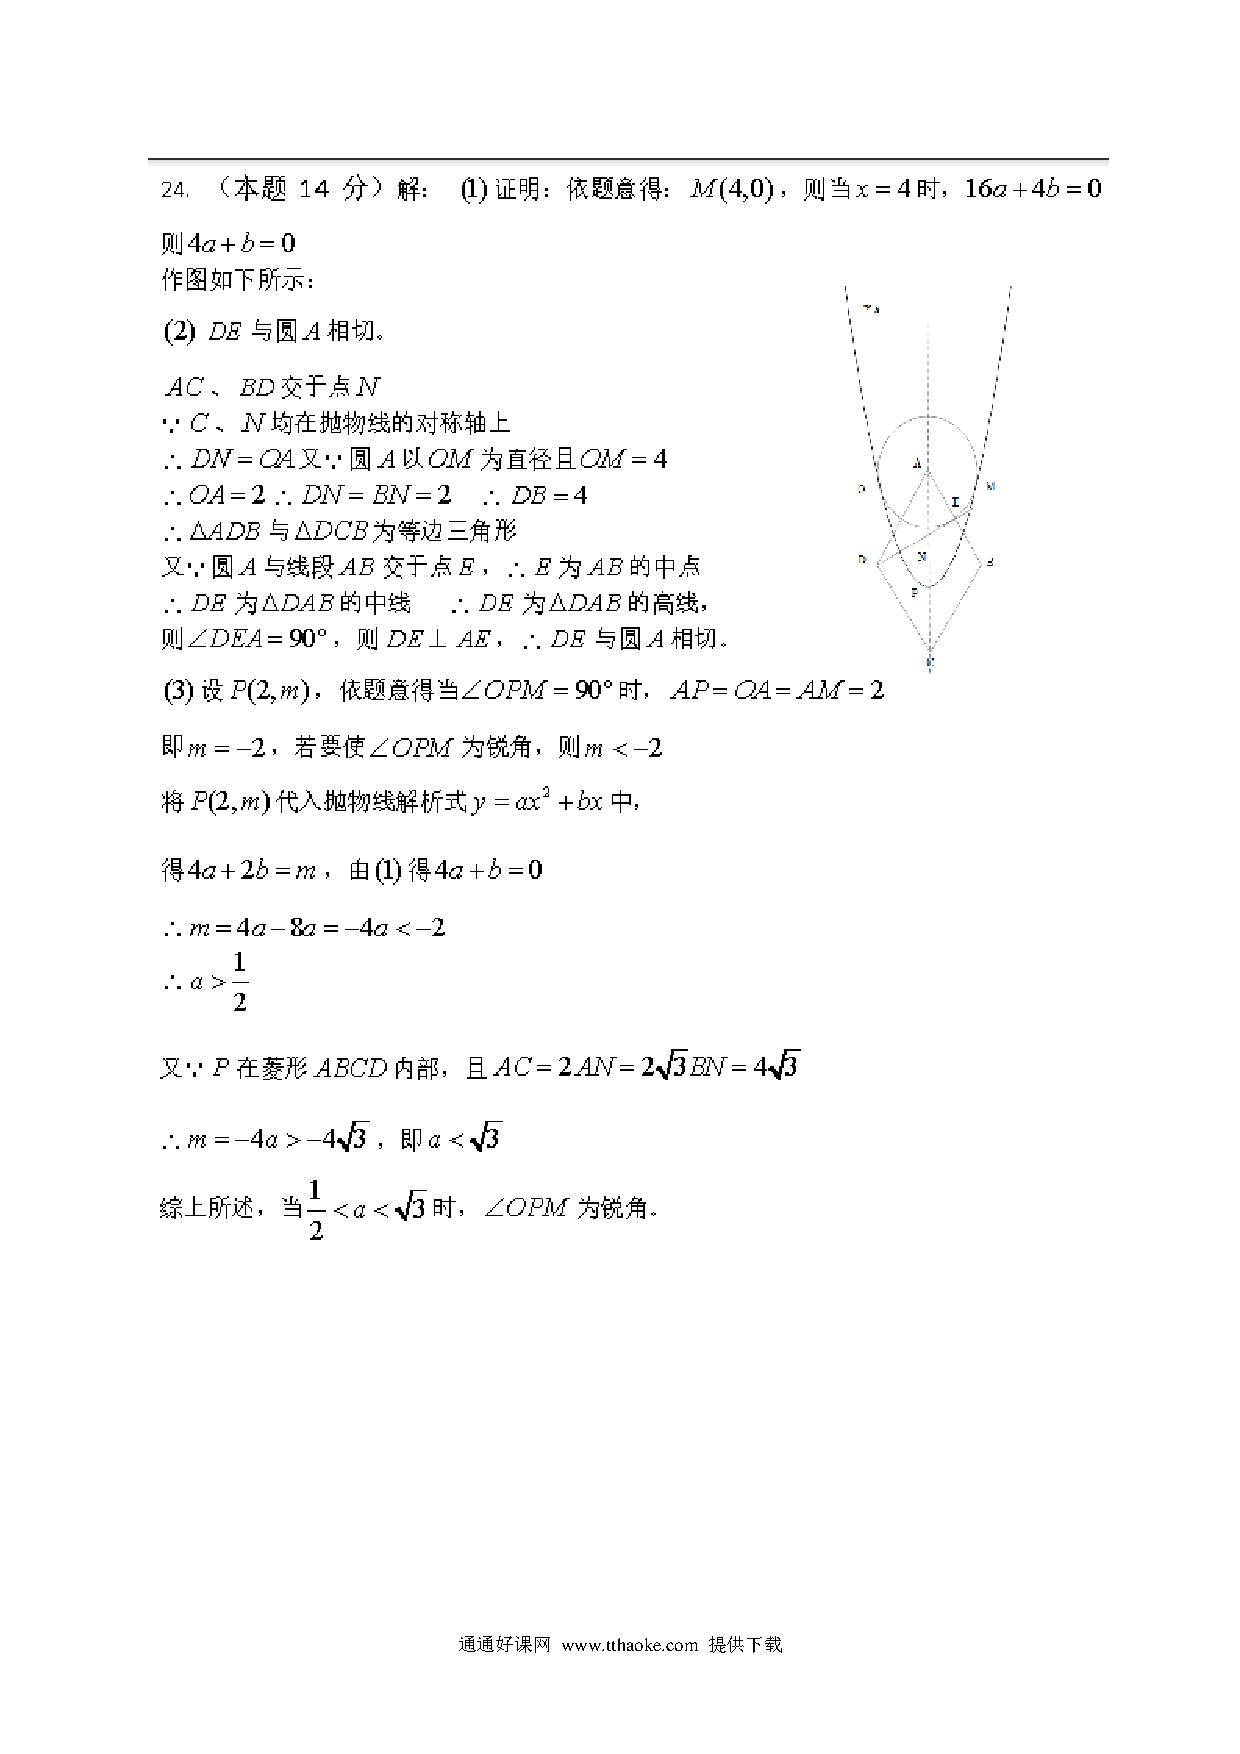 24. （本题 14 分）解： (1)证明：依题意得：M(4,0)，则当x=4时，16a+4b=0
则4a+b=0
作图如下所示：
(2) DE与圆A相切。
AC、BD交于点N
∵C、N均在抛物线的对称轴上
∴DN=OA又∵圆A以OM为直径且OM=4
∴OA=2∴DN=BN=2 ∴DB=4
∴ΔADB与ΔDCB为等边三角形
又∵圆A与线段AB交于点E，∴E为AB的中点
∴DE为ΔDAB的中线 ∴DE为ΔDAB的高线，
则∠DEA=90°，则DE⊥AE，∴DE与圆A相切。
A
O
M
N
P
C
(3)设P(2,m)，依题意得当∠OPM=90°时，AP=OA=AM=2
即m=-2，若要使∠OPM为锐角，则m<-2
将P(2,m)代入抛物线解析式y=ax²+bx中，
得4a+2b=m，由(1)得4a+b=0
∴m=4a-8a=-4a<-2
∴a>1/2
又∵P在菱形ABCD内部，且AC=2AN=2√3BN=4√3
∴m=-4a>-4√3，即a<√3
综上所述，当1/2<a<√3时，∠OPM为锐角。
通通好课网 www.tthaoke.com 提供下载